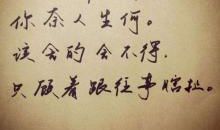 你奈人生何。
该舍的舍不得，
只顾着跟往事瞎扯。